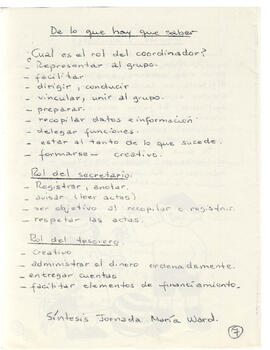 De lo que hay que saber
¿Cual es el rol del coordinador?
- Representar al grupo.
- facilitar
- dirigir, conducir
- vincular, unir al grupo.
- preparar.
- recopilar datos e informacion
- delegar funciones.
- estar al tanto de lo que sucede.
- formarse - creativo.
Rol del secretario.
- Registrar, anotar.
- avisar (leer actas)
- ser objetivo al recopilar o registrar.
- respetar las actas.
Rol del tesorero.
- Creativo
- administrar el dinero ordenadamente.
- entregar cuentas
- facilitar elementos de financiamiento.
Síntesis Jornada María Ward.
7